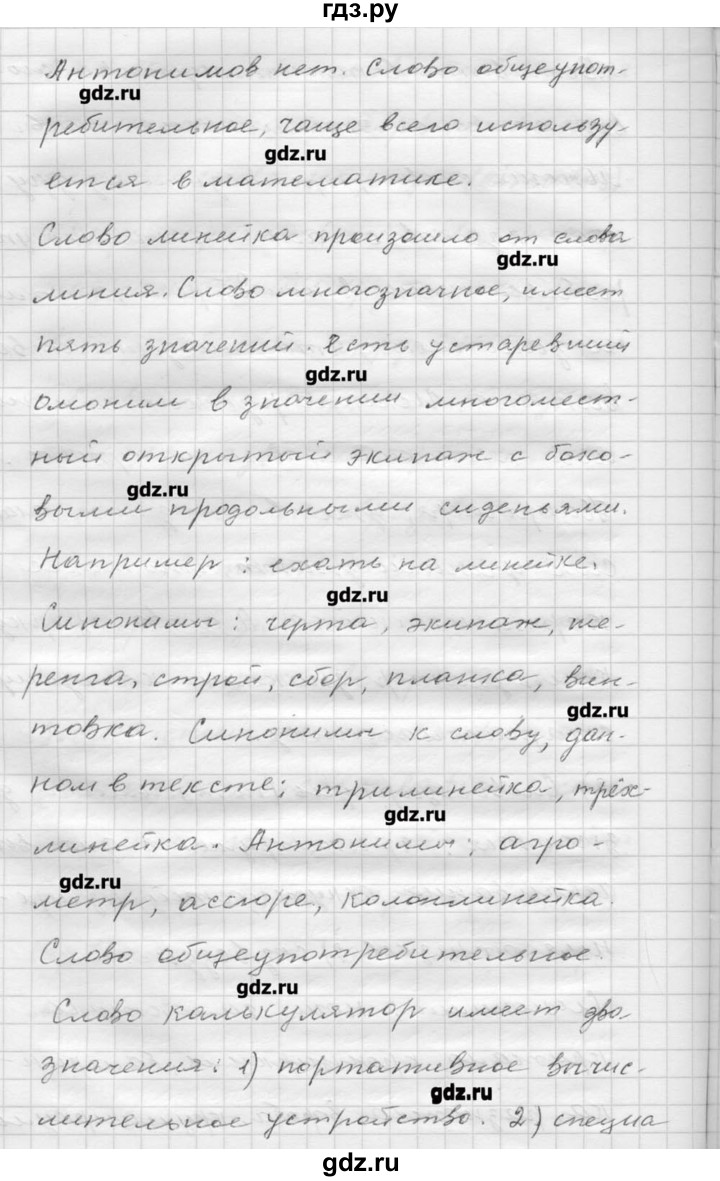 гдз.ру
Антонимов нет. Слово общеупот-
gdz.ru
ребительное, чаще всего использу-
gdz.ru
ется в математике.
Слово линейка произошло от слова
gdz.ru
линия. Слово многозначное, имеет
пять значений. Есть устаревший
gdz.ru
омоним в значении многомест-
ный открытый экипаж с боко-
gdz.ru
выми продольными сиденьями.
Например: ехать на линейке.
gdz.ru
Синонимы: черта, экипаж, ше-
ренга, строй, сбор, планка, вин-
gdz.ru
товка. Синонимы к слову, дан-
ном в тексте: трилинейка, трёх-
gdz.ru
линейка. Антонимы: агро-
gdz.ru
метр, ассюре, колонлинейка.
Слово общеупотребительное.
gdz.ru
Слово калькулятор имеет два
значения: 1) портативное вычис-
gdz.ru
лительное устройство. 2) специа
gdz.ru